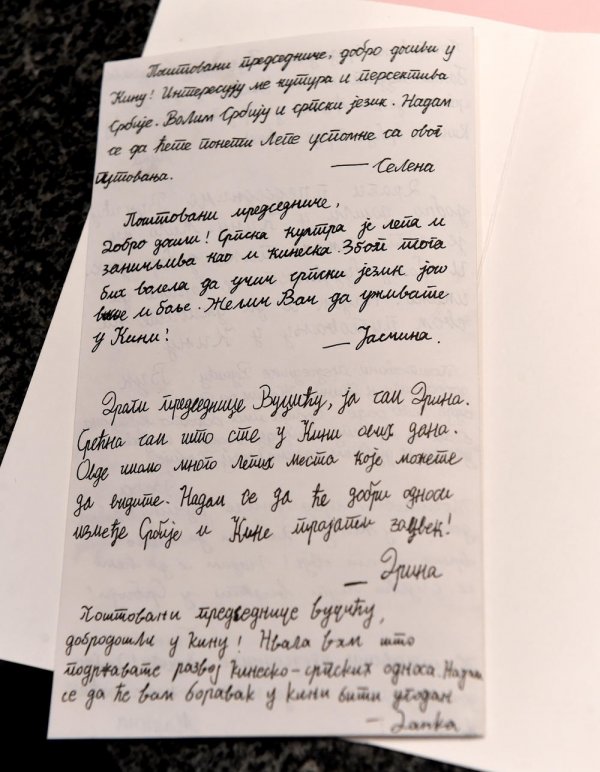 Поштовани председниче, добро дошви у
Кину! Интересују ме кутура и персектива
Србије. Волим Србију и српски језик. Надам
се да ћете понети лепе успомне са овог
путовања.
— Селена
Поштовани председниче,
Добро дошли! Српска култра је лепа и
занимљива као и кинеска. Због тога
бих волела да учим српски језик још
више и боље. Желим Вам да уживате
у Кини!
— Јасмина.
Драги председнице Вуцићу, ја сам Дрина.
Срећна сам што сте у Кини ових дана.
Овде имамо много лепих места које можете
да видите. Надам се да ће добри односи
између Србије и Кине трајати заувек!
— Дрина
Поштовани председнице вучићу,
добродошли у кину! Хвала вам што
подржавате развој кинеско-српских односа. Надам
се да ће вам боравак у кини бити угодан